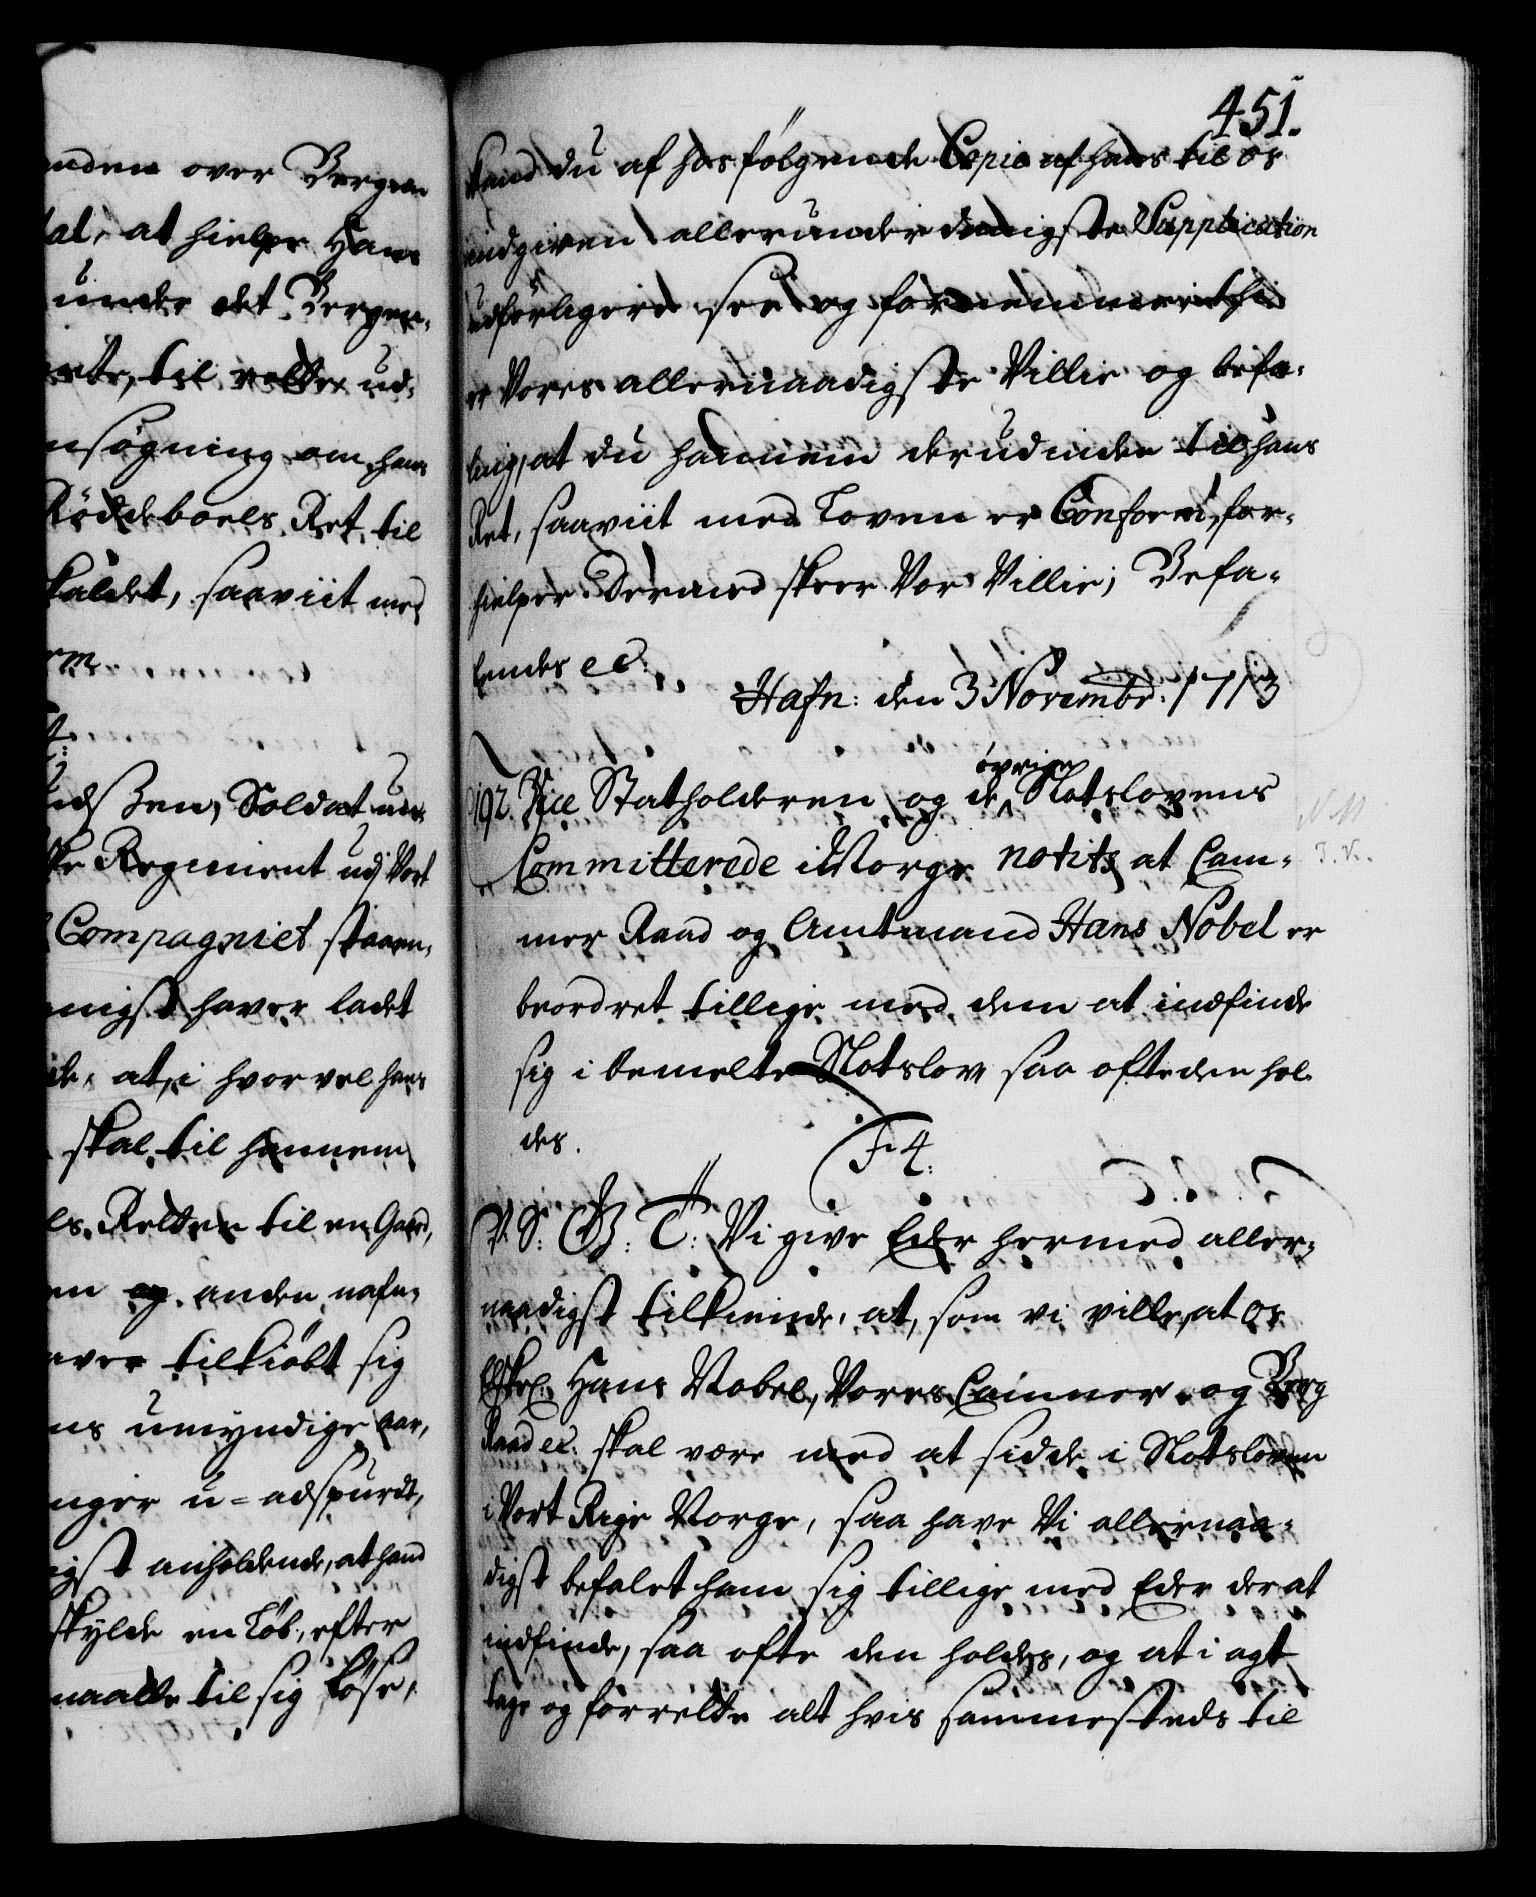 anden over Bergen
tal, at hielpe Hans
under det Bergen-
rette, til rette ud-
nsøgning om hans
Röddeboels Ret til
kaldet, saaviit med
rm.
udßen, Soldat un-
ske Regiment udj Vort
Compagniet staaen-
nigst haver ladet
de, at, i hvorvel hans
skal til hannem
ls Retten til en Gaard,
en og anden nafn-
aver tilkiöbt sig
ns umyndige Aar,
nger u-adspurdt,
igst anholdende, at hand
skylde en Löb, efter
maatte til sig löse,
451.
Kand du af hosfølgende Copie af hans til os
indgiven allerunderdanigste Supplication
udförligere see og fornemme. Thi
er Vores allernaadigste Villie og befa-
ling, at du hannem derudinden til hans
Ret, saaviit med Loven er Conform, for-
hielper. Dermed skeer Vor Villie; Befa-
lendes ec:
Hafn: den 3 Novembr: 1713
192. Vice Statholderen og de övrige Slotslovens
Committerede i Norge notits at Cam-
mer Raad og Amtmand Hans Nobel er
beordret tillige med dem at indfinde
sig i bemelte Slotslov saa ofte den hol-
des.
F4.
P. S. G: T: Vi give Eder hermed aller-
naadigst tilkiende, at, som vi ville, at Os
Elskel: Hans Nobel, Vores Cammer og Berg
Raad ec. skal være med at sidde i Slotsloven
i Vort Rige Norge, saa have Vi allernaa-
digst befalet ham sig tillige med Eder derat
indfinde, saa ofte den holdes, og at i agt
tage og forrette alt hvis sammesteds til